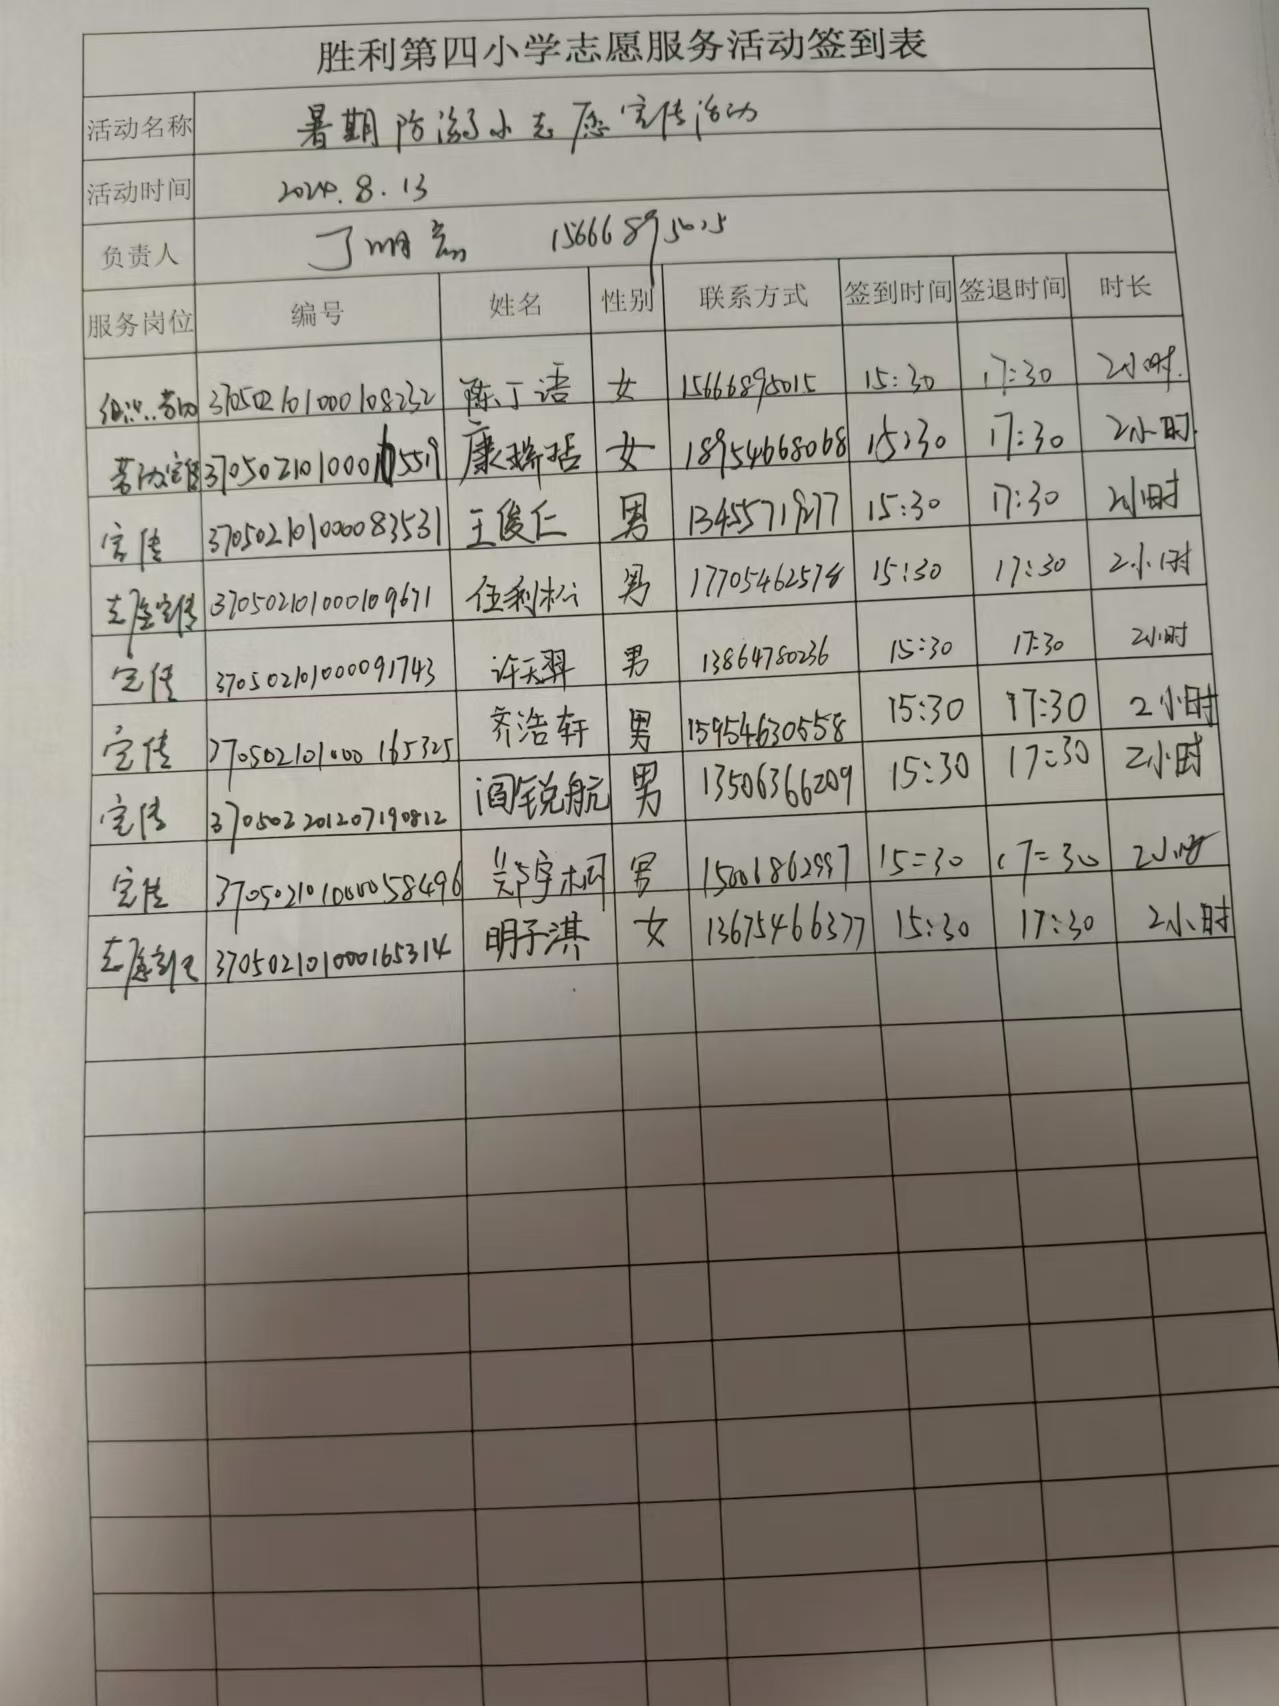 胜利第四小学志愿服务活动签到表
活动名称 暑期防溺小志愿宣传活动
活动时间 2024.8.13
负责人 丁明 15666895015
服务岗位 编号 姓名 性别 联系方式 签到时间 签退时间 时长
370502101000108232 陈丁语 女 15666895015 15:30 17:30 2小时
宣传 康瑞 女 18954668068 15:30 17:30 2小时
宣传 370502101000083531 王俊仁 男 13455719277 15:30 17:30 2小时
志愿宣传 370502101000109671 伍利 男 17705462578 15:30 17:30 2小时
宣传 370502101000091743 许天羿 男 13864780236 15:30 17:30 2小时
宣传 370502101000165325 齐浩轩 男 15954630558 15:30 17:30 2小时
宣传 370502201207190812 阎锐航 男 13506366209 15:30 17:30 2小时
宣传 370502101000058496 郑宇桐 男 15:30 17:30 2小时
志愿 370502101000165314 明子淇 女 13675466377 15:30 17:30 2小时